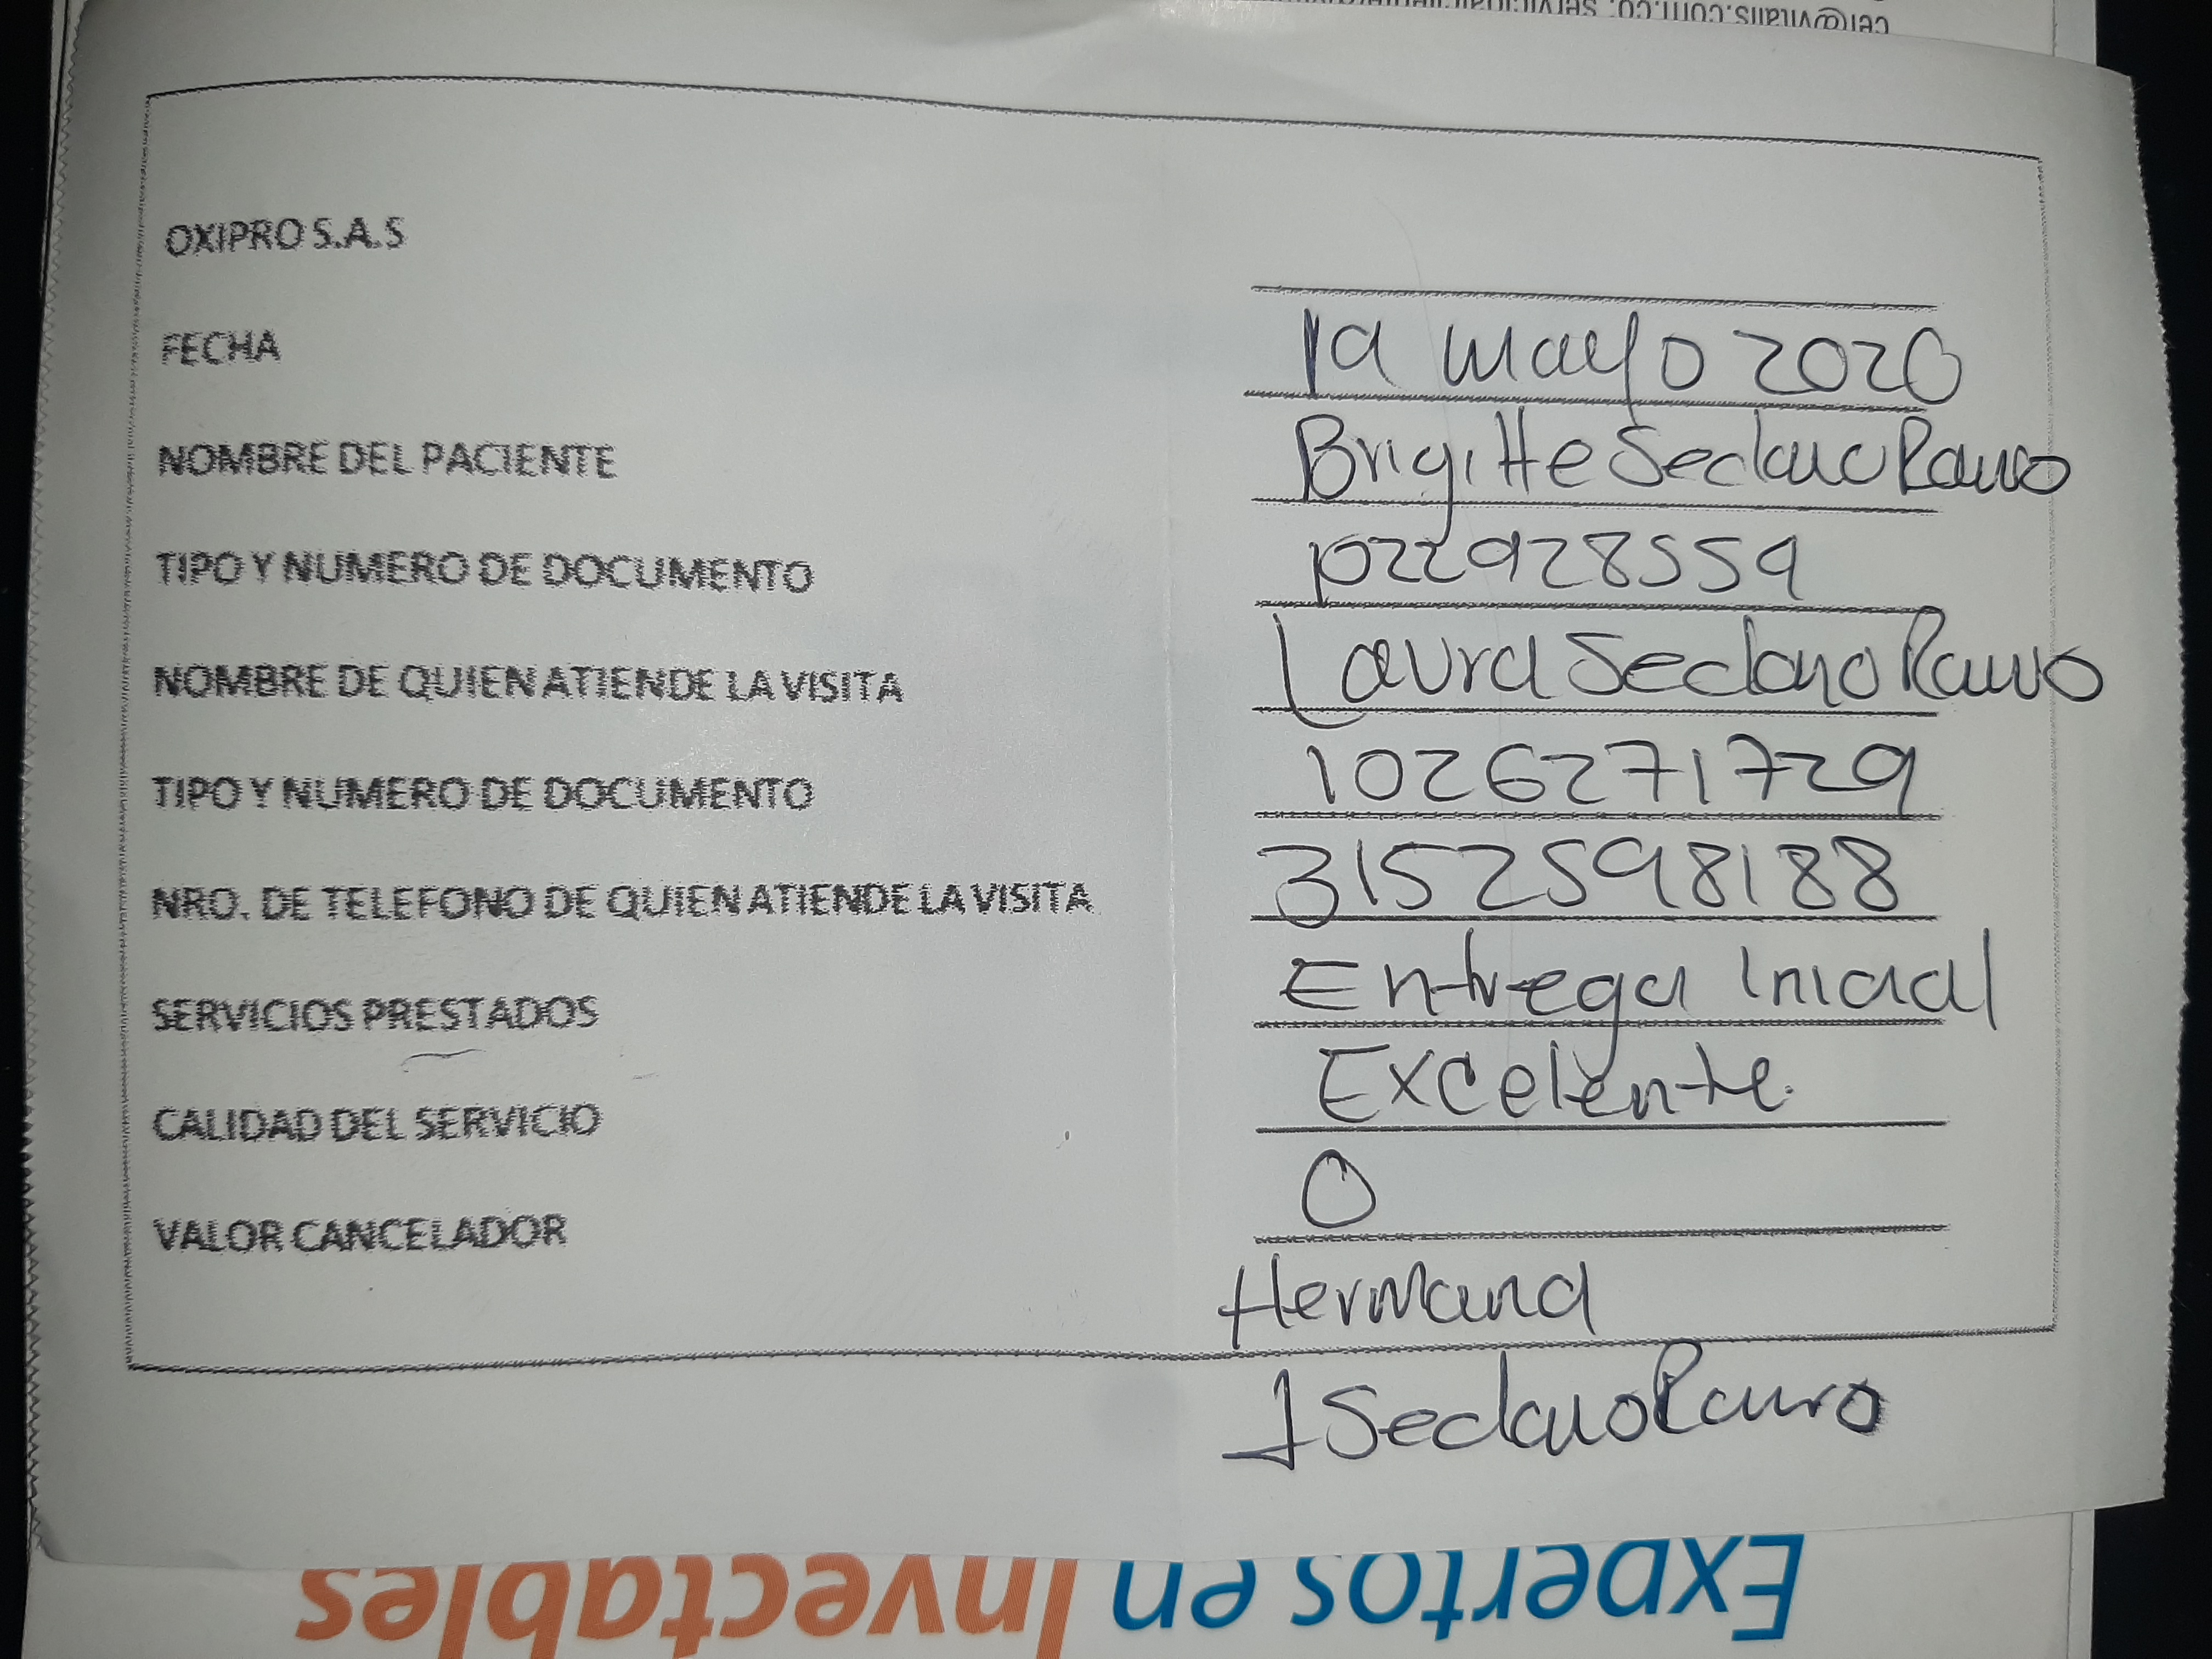 OXIPRO S.A.S
FECHA 19 mayo 2020
NOMBRE DEL PACIENTE Brigitte Sedano
TIPO Y NUMERO DE DOCUMENTO 1022928559
NOMBRE DE QUIEN ATIENDE LA VISITA Laura Sedano
TIPO Y NUMERO DE DOCUMENTO 1026271729
NRO. DE TELEFONO DE QUIEN ATIENDE LA VISITA 3152598188
SERVICIOS PRESTADOS Entrega Inicial
CALIDAD DEL SERVICIO Excelente.
VALOR CANCELADOR 0
Hermana
Sedano
Expertos en Inyectables